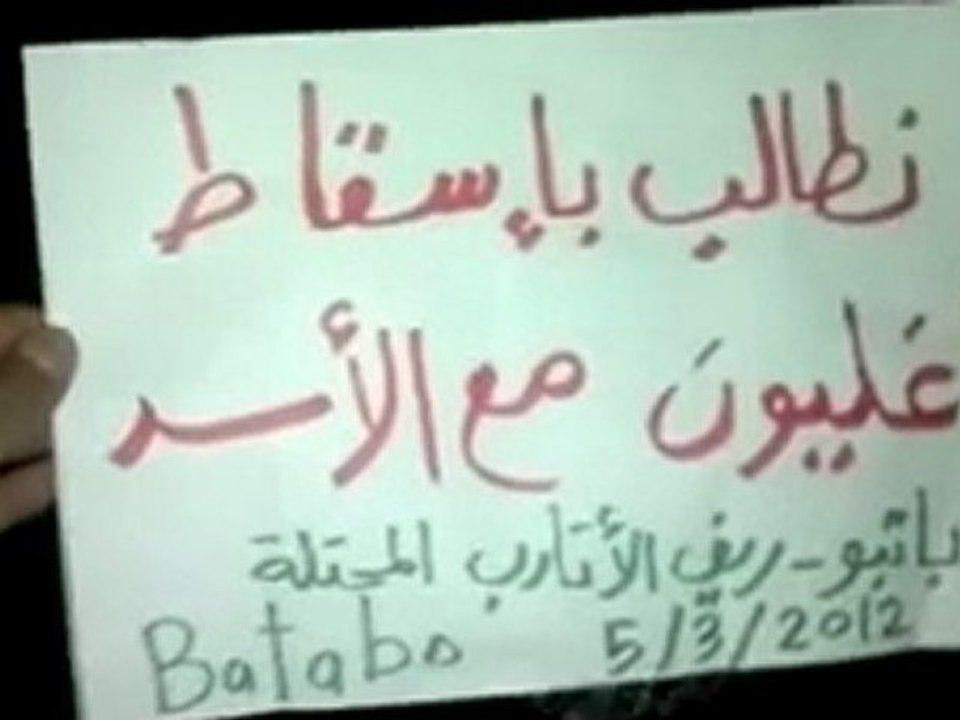 نطالب بإسقاط
غليون مع الأسد
باتبو - ريف الأتارب المحتلة
Batabo 5/3/2012